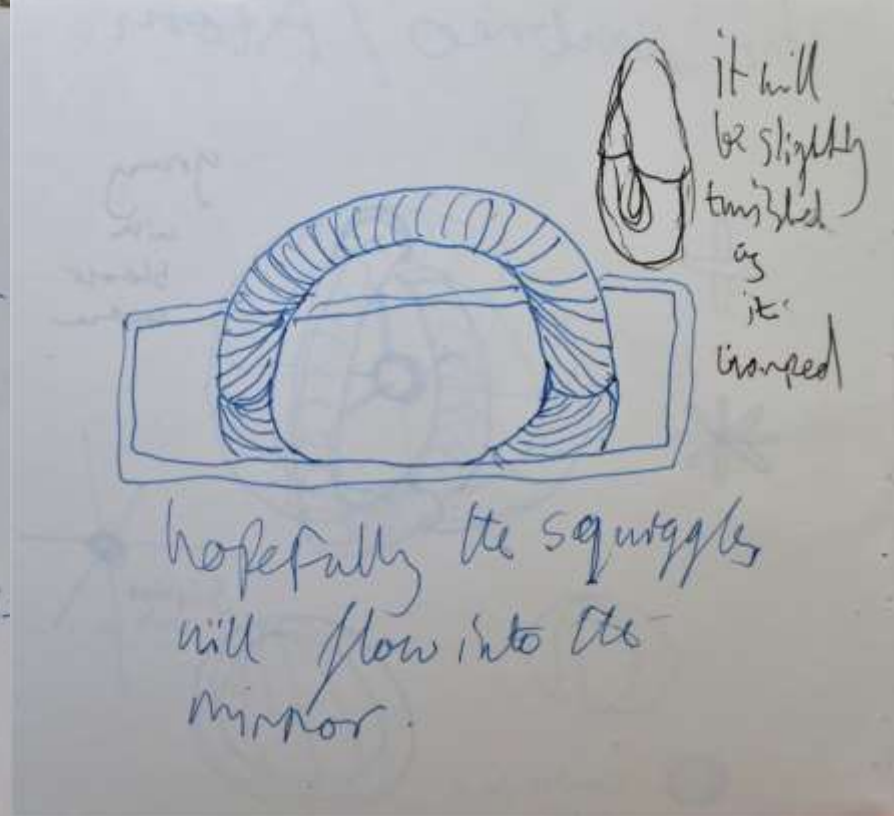 it will
be slightly
twisted
as
it
warped
hopefully the squiggles
will flow into the
mirror.